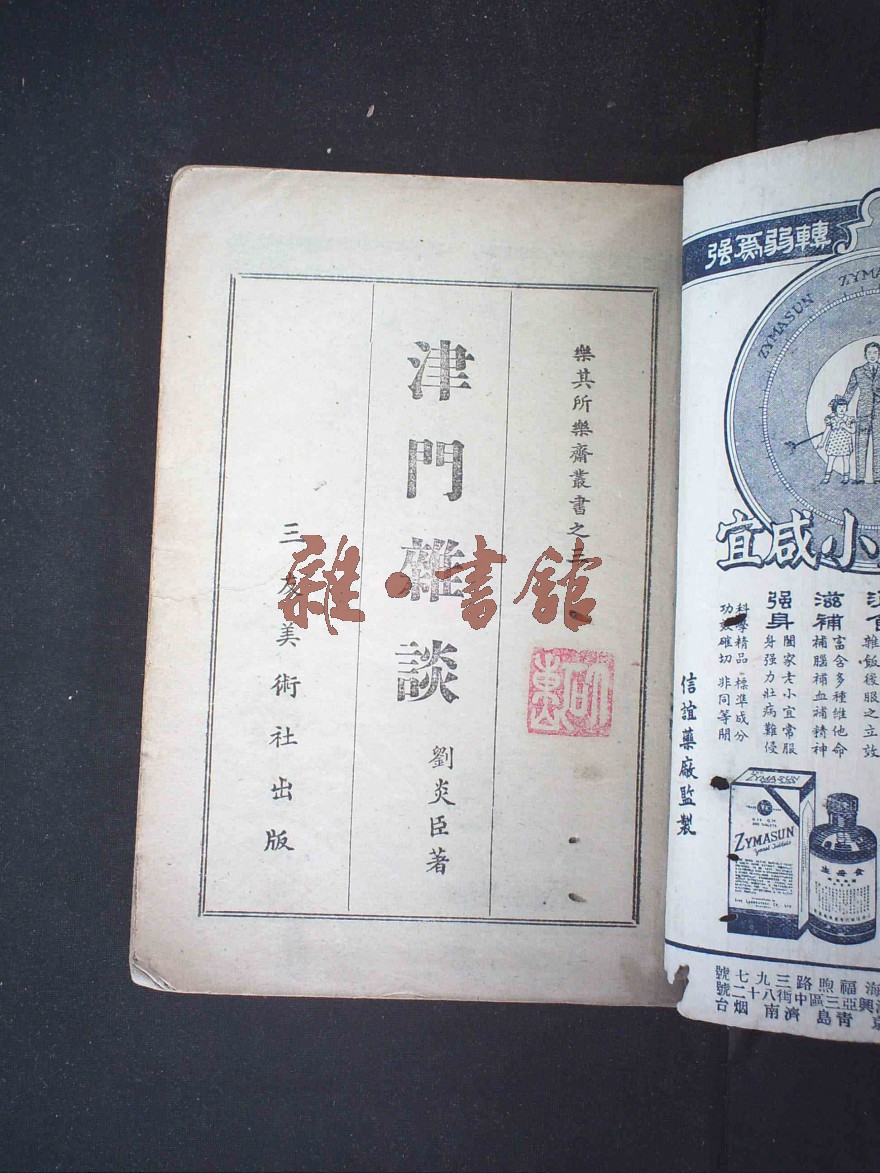 樂其所樂齋叢書之三
津門雜談
劉炎臣著
三友美術社出版
雜·書館
强爲弱轉
ZYMASUN
宜咸小
强身
闔家老小宜常服
身强力壯病難侵
滋補
富含多種維他命
補腦補血補精神
雜飯後服之立效
科學精品 標準成分
功效確切 非同等閒
信誼藥廠監製
ZYMASUN
ZYMASUN
Yeast Tablets
食母生
號七九三路煦福海
號二十八街中區三亞興
台烟 南濟 島青